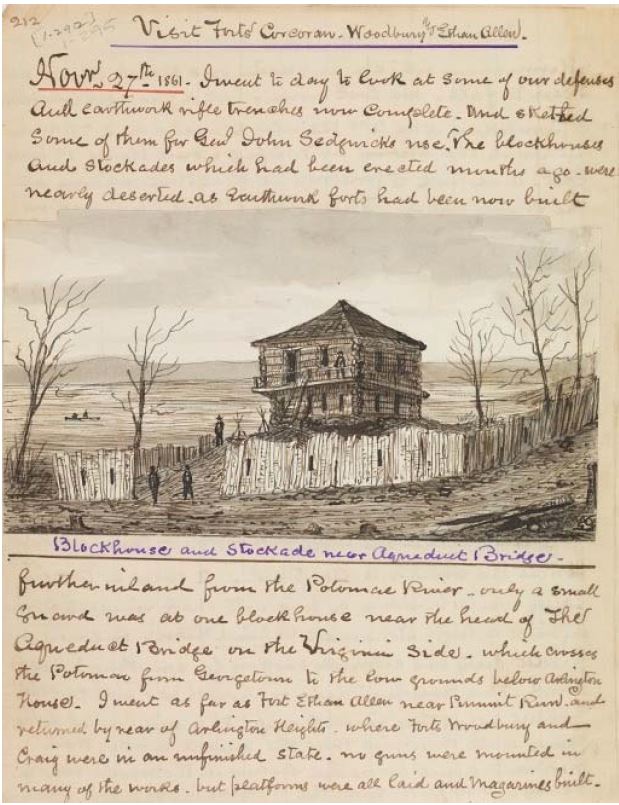 212
[1-292]
1-295
Visit Forts Corcoran. Woodbury & Ethan Allen.
Novr 27th 1861. I went to day to look at some of our defenses
and earthwork rifle trenches now complete. And sketched
some of them for Genl John Sedgwicks use. The blockhouses
and stockades which had been erected months ago. were
nearly deserted. as Earthwork forts had been now built
Blockhouse and Stockade near Aqueduct Bridge.
further inland from the Potomac River. only a small
Guard was at one blockhouse near the head of The
Aqueduct Bridge on the Virginia Side. which crosses
the Potomac from Georgetown to the low grounds below Arlington
House. I went as far as Fort Ethan Allen near Pimmit Run. and
returned by rear of Arlington Heights. where Forts Woodbury and
Craig were in an unfinished state. no guns were mounted in
many of the works. but platforms were all laid and Magazines built.